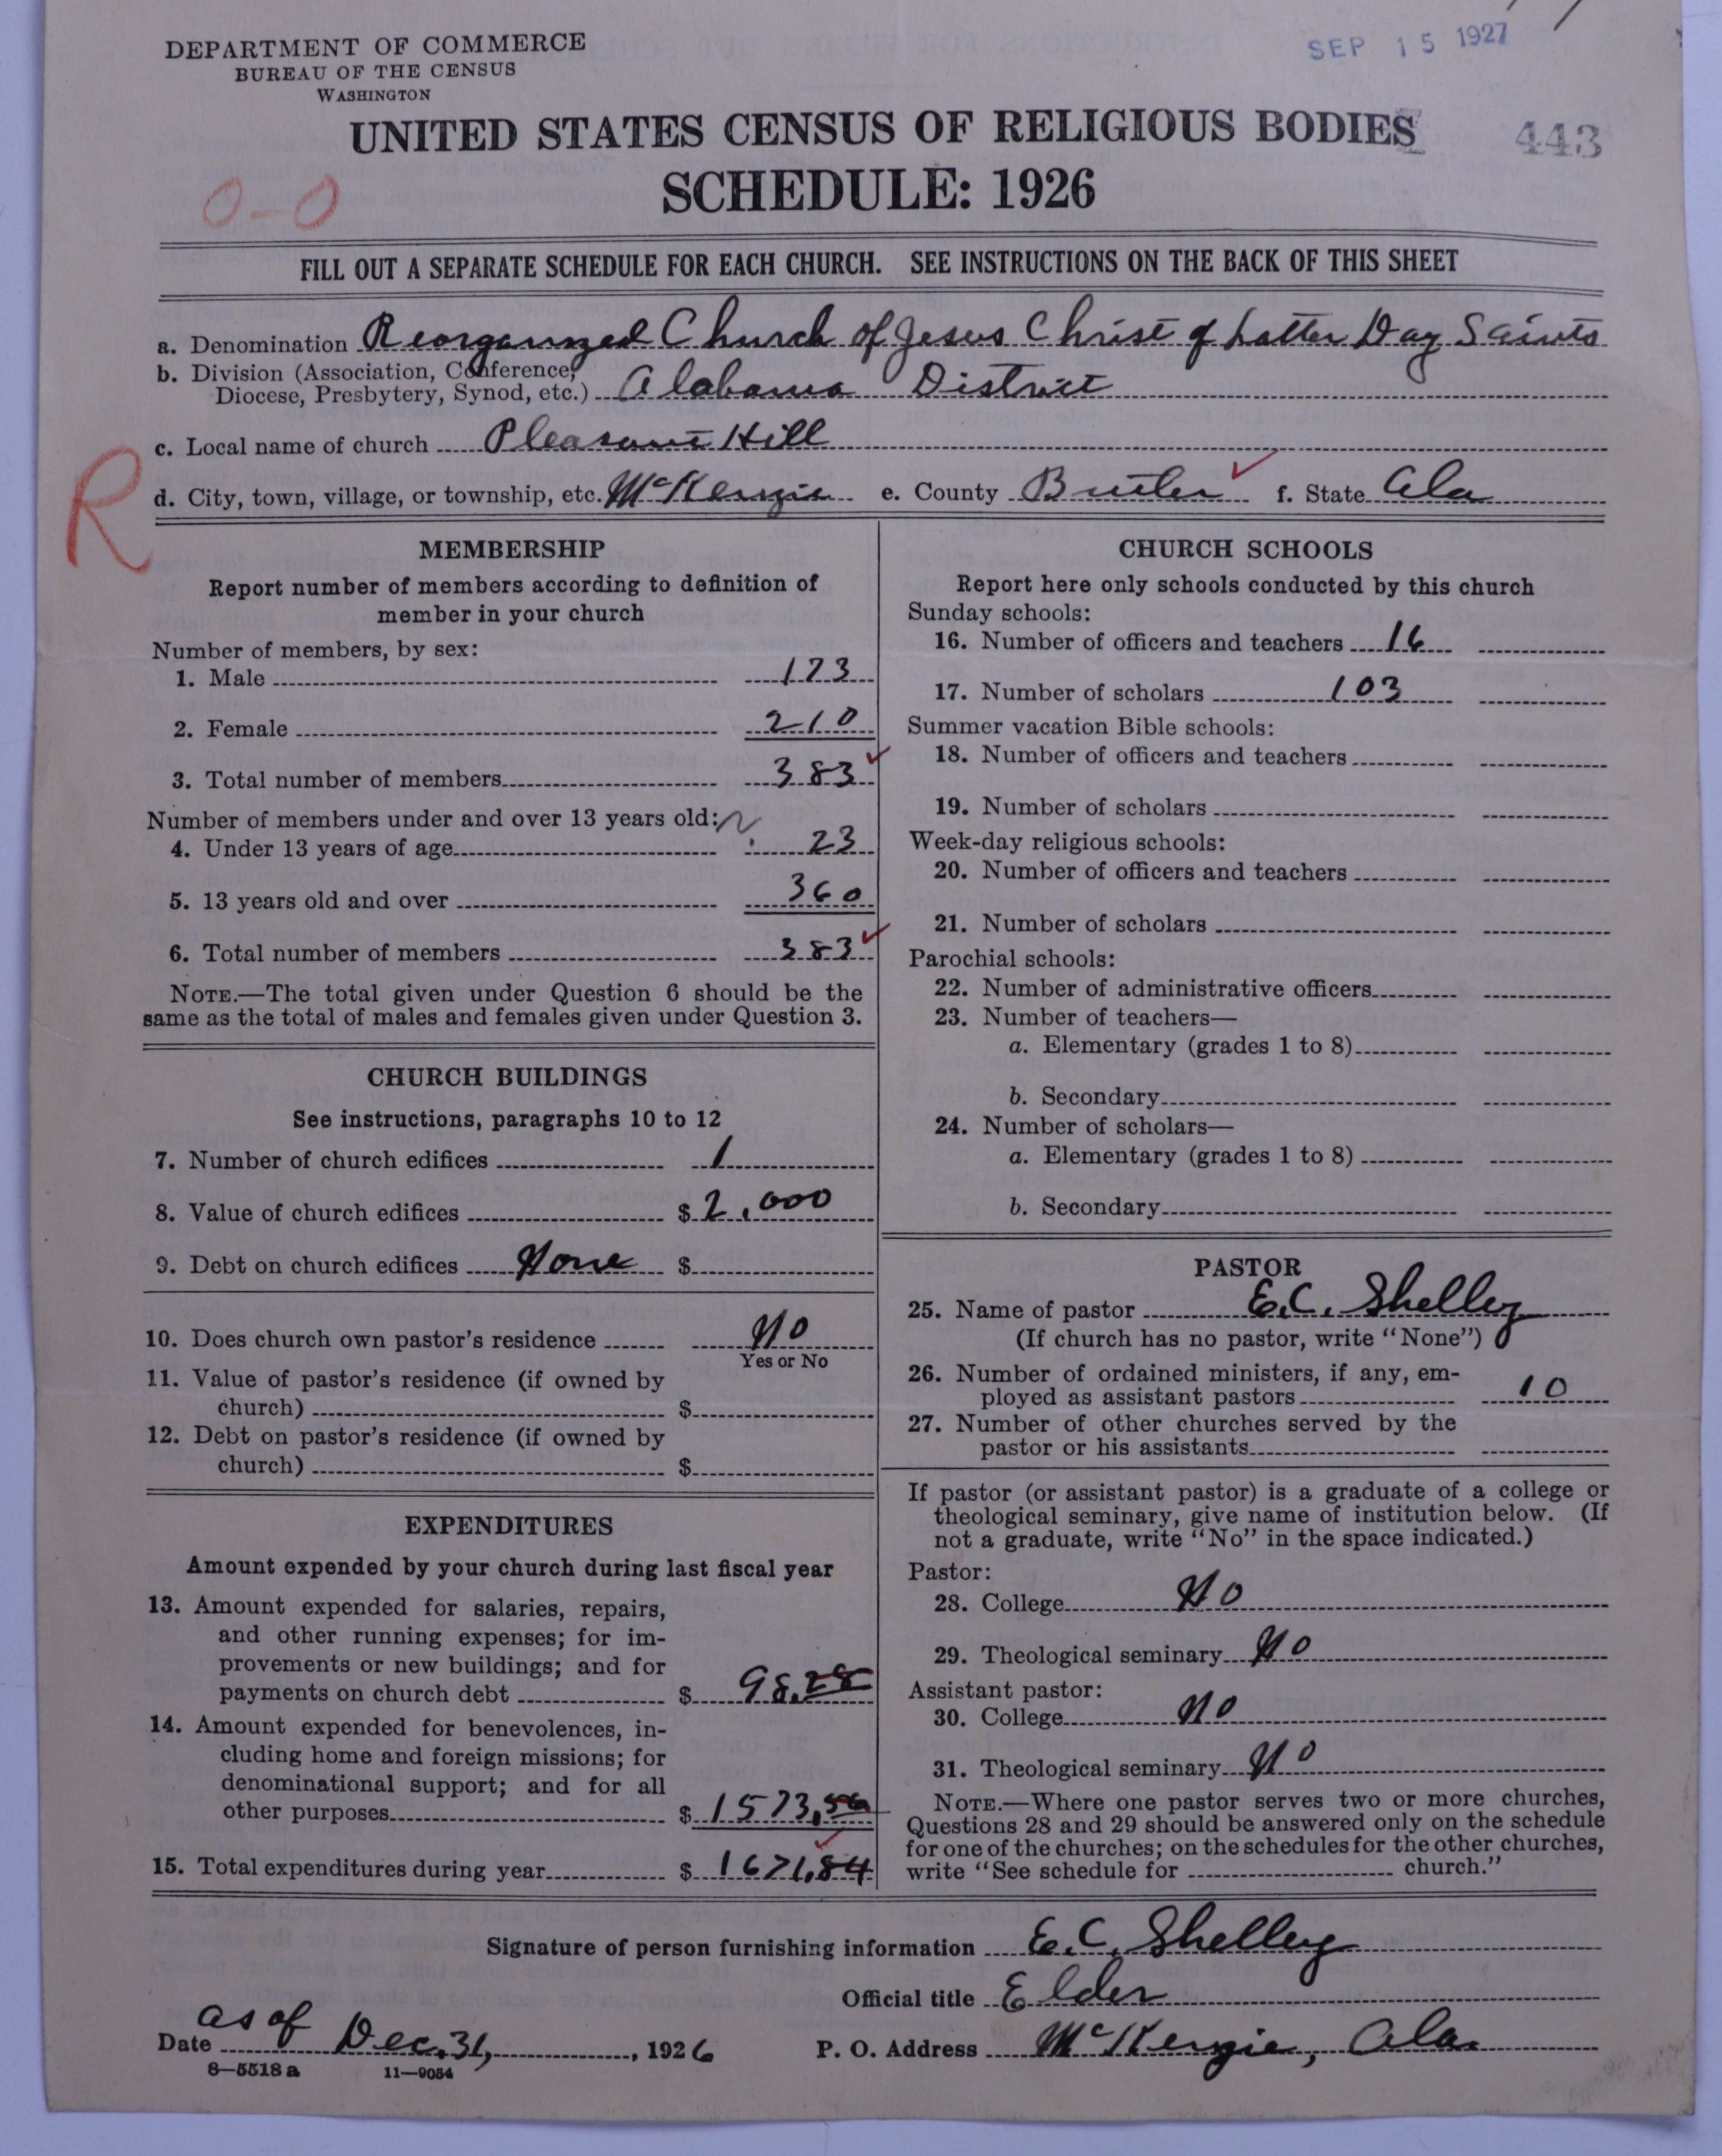 DEPARTMENT OF COMMERCE
BUREAU OF THE CENSUS
WASHINGTON
SEP 15 1927
UNITED STATES CENSUS OF RELIGIOUS BODIES
443
SCHEDULE: 1926
0-0
FILL OUT A SEPARATE SCHEDULE FOR EACH CHURCH. SEE INSTRUCTIONS ON THE BACK OF THIS SHEET
a. Denomination Reorganized Church of Jesus Christ of Latter Day Saints
b. Division (Association, Conference,
Diocese, Presbytery, Synod, etc.) Alabama District
c. Local name of church Pleasant Hill
R
d. City, town, village, or township, etc. McKenzie e. County Butler f. State Ala
MEMBERSHIP
Report number of members according to definition of
member in your church
Number of members, by sex:
1. Male 173
2. Female 210
3. Total number of members 383
Number of members under and over 13 years old:
4. Under 13 years of age 23
5. 13 years old and over 360
6. Total number of members 383
NOTE.—The total given under Question 6 should be the
same as the total of males and females given under Question 3.
CHURCH BUILDINGS
See instructions, paragraphs 10 to 12
7. Number of church edifices 1
8. Value of church edifices $ 2,000
9. Debt on church edifices None $
10. Does church own pastor's residence No
Yes or No
11. Value of pastor's residence (if owned by
church) $
12. Debt on pastor's residence (if owned by
church) $
EXPENDITURES
Amount expended by your church during last fiscal year
13. Amount expended for salaries, repairs,
and other running expenses; for im-
provements or new buildings; and for
payments on church debt $ 98.28
14. Amount expended for benevolences, in-
cluding home and foreign missions; for
denominational support; and for all
other purposes $ 1573.56
15. Total expenditures during year $ 1671.84
CHURCH SCHOOLS
Report here only schools conducted by this church
Sunday schools:
16. Number of officers and teachers 16
17. Number of scholars 103
Summer vacation Bible schools:
18. Number of officers and teachers
19. Number of scholars
Week-day religious schools:
20. Number of officers and teachers
21. Number of scholars
Parochial schools:
22. Number of administrative officers
23. Number of teachers—
a. Elementary (grades 1 to 8)
b. Secondary
24. Number of scholars—
a. Elementary (grades 1 to 8)
b. Secondary
PASTOR
25. Name of pastor E.C. Shelley
(If church has no pastor, write "None")
26. Number of ordained ministers, if any, em-
ployed as assistant pastors 10
27. Number of other churches served by the
pastor or his assistants
If pastor (or assistant pastor) is a graduate of a college or
theological seminary, give name of institution below. (If
not a graduate, write "No" in the space indicated.)
Pastor:
28. College No
29. Theological seminary No
Assistant pastor:
30. College No
31. Theological seminary No
NOTE.—Where one pastor serves two or more churches,
Questions 28 and 29 should be answered only on the schedule
for one of the churches; on the schedules for the other churches,
write "See schedule for church."
Signature of person furnishing information E.C. Shelley
Official title Elder
Date as of Dec. 31, , 1926 P. O. Address McKenzie, Ala.
8—5518 a 11—9054